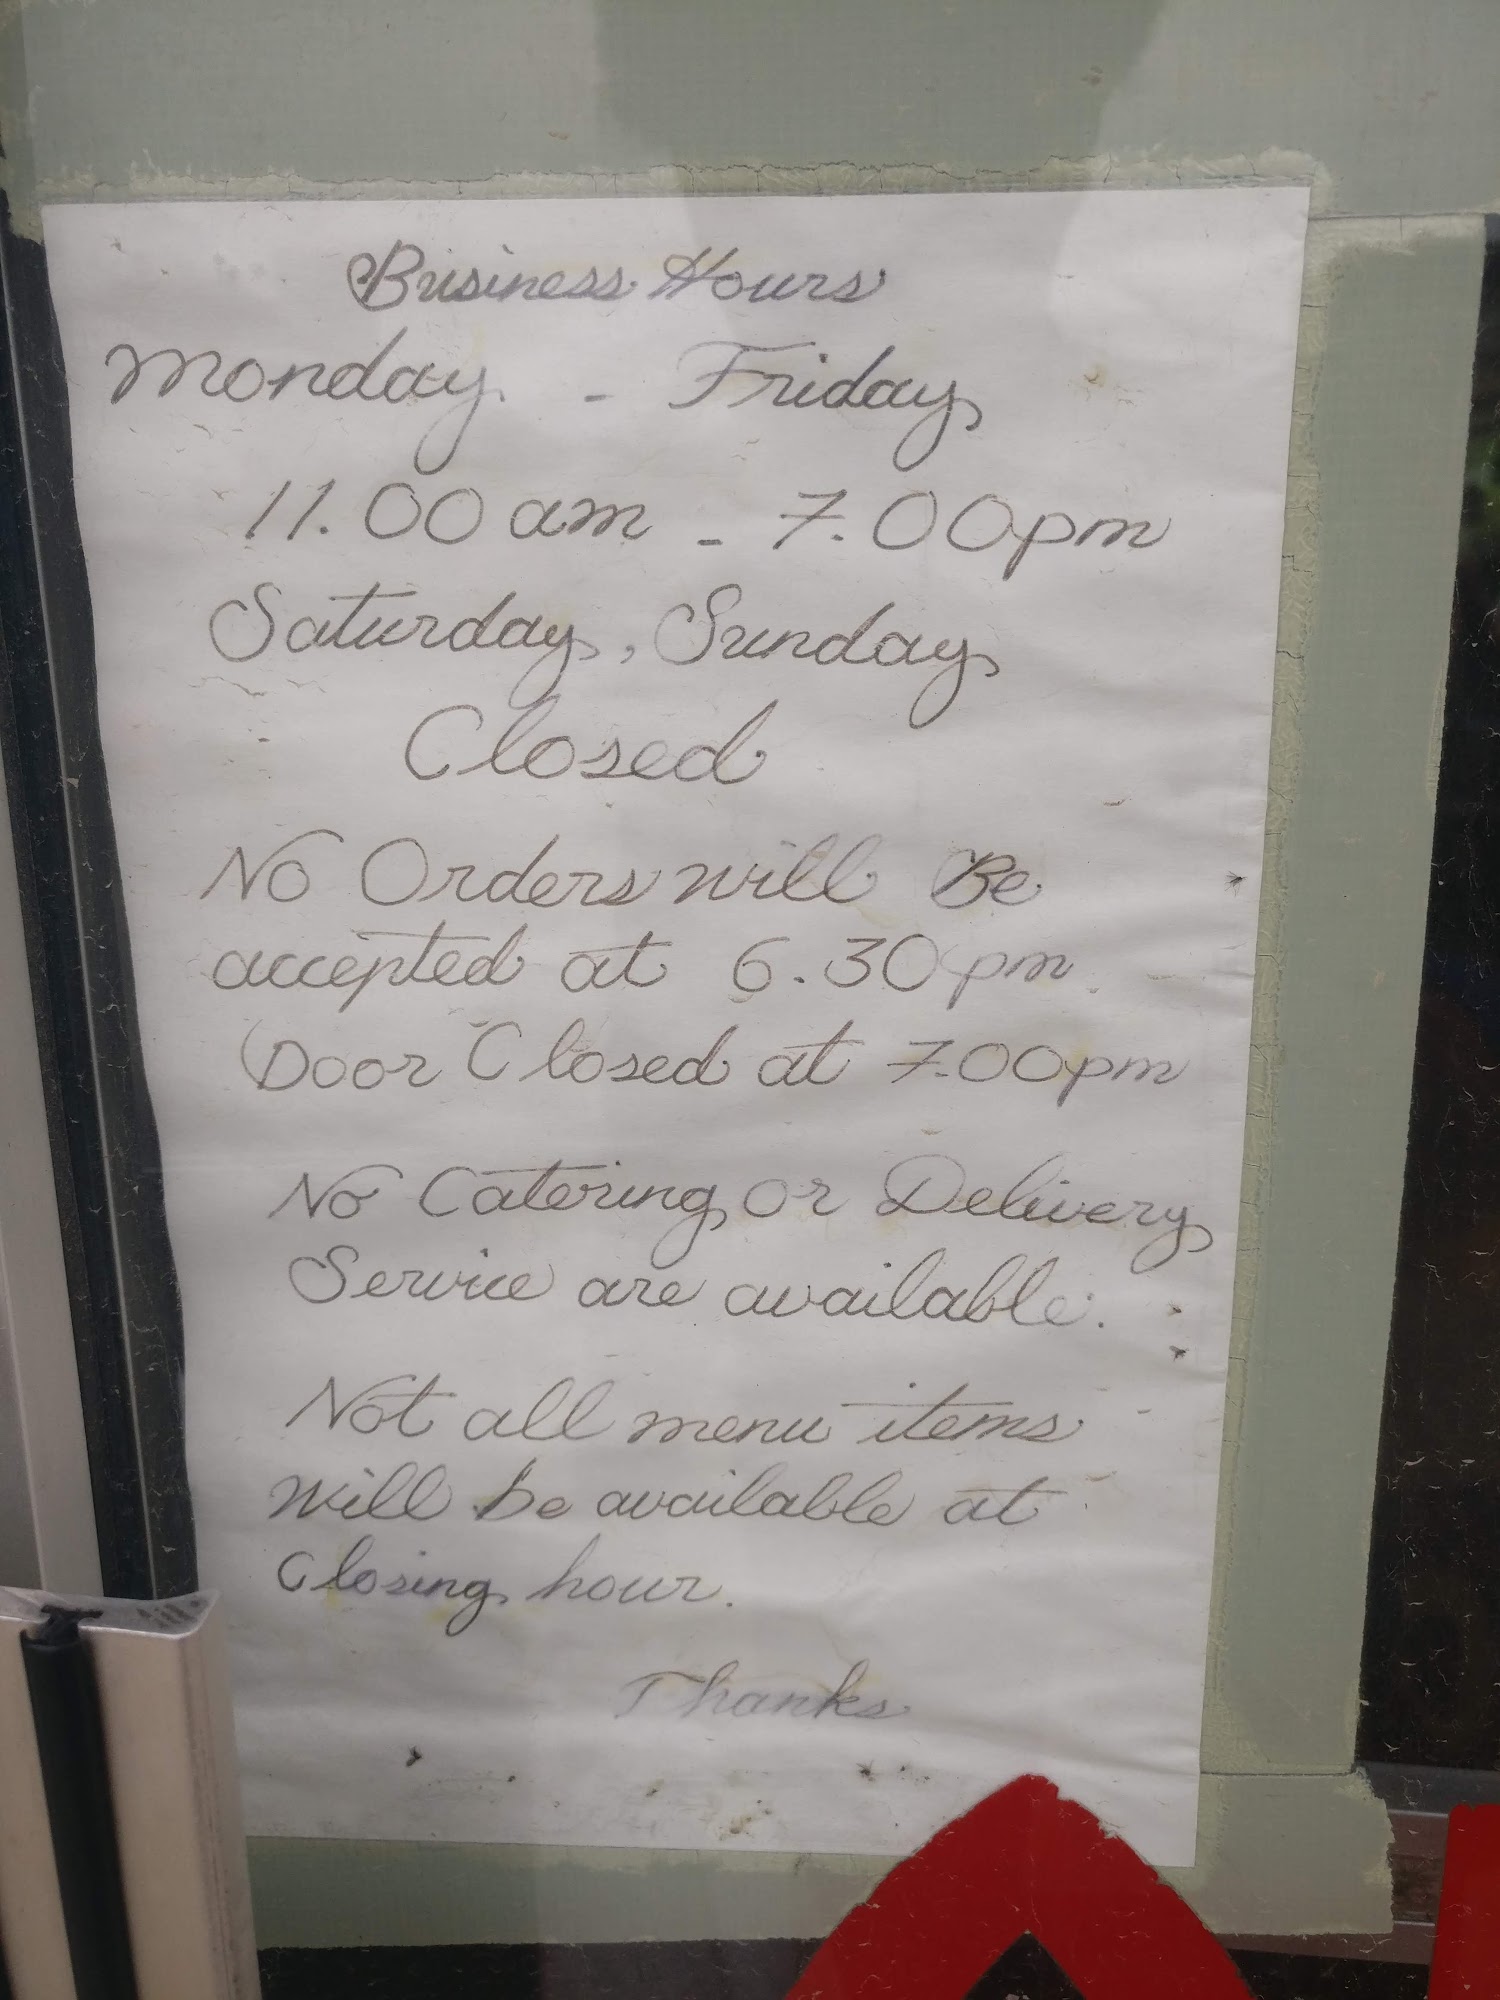 Business Hours
Monday - Friday
11.00 am - 7.00pm
Saturday, Sunday
Closed
No Orders will Be
accepted at 6.30pm.
Door Closed at 7.00pm
No Catering or Delivery
Service are available.
Not all menu items
will be available at
Closing hour.
Thanks